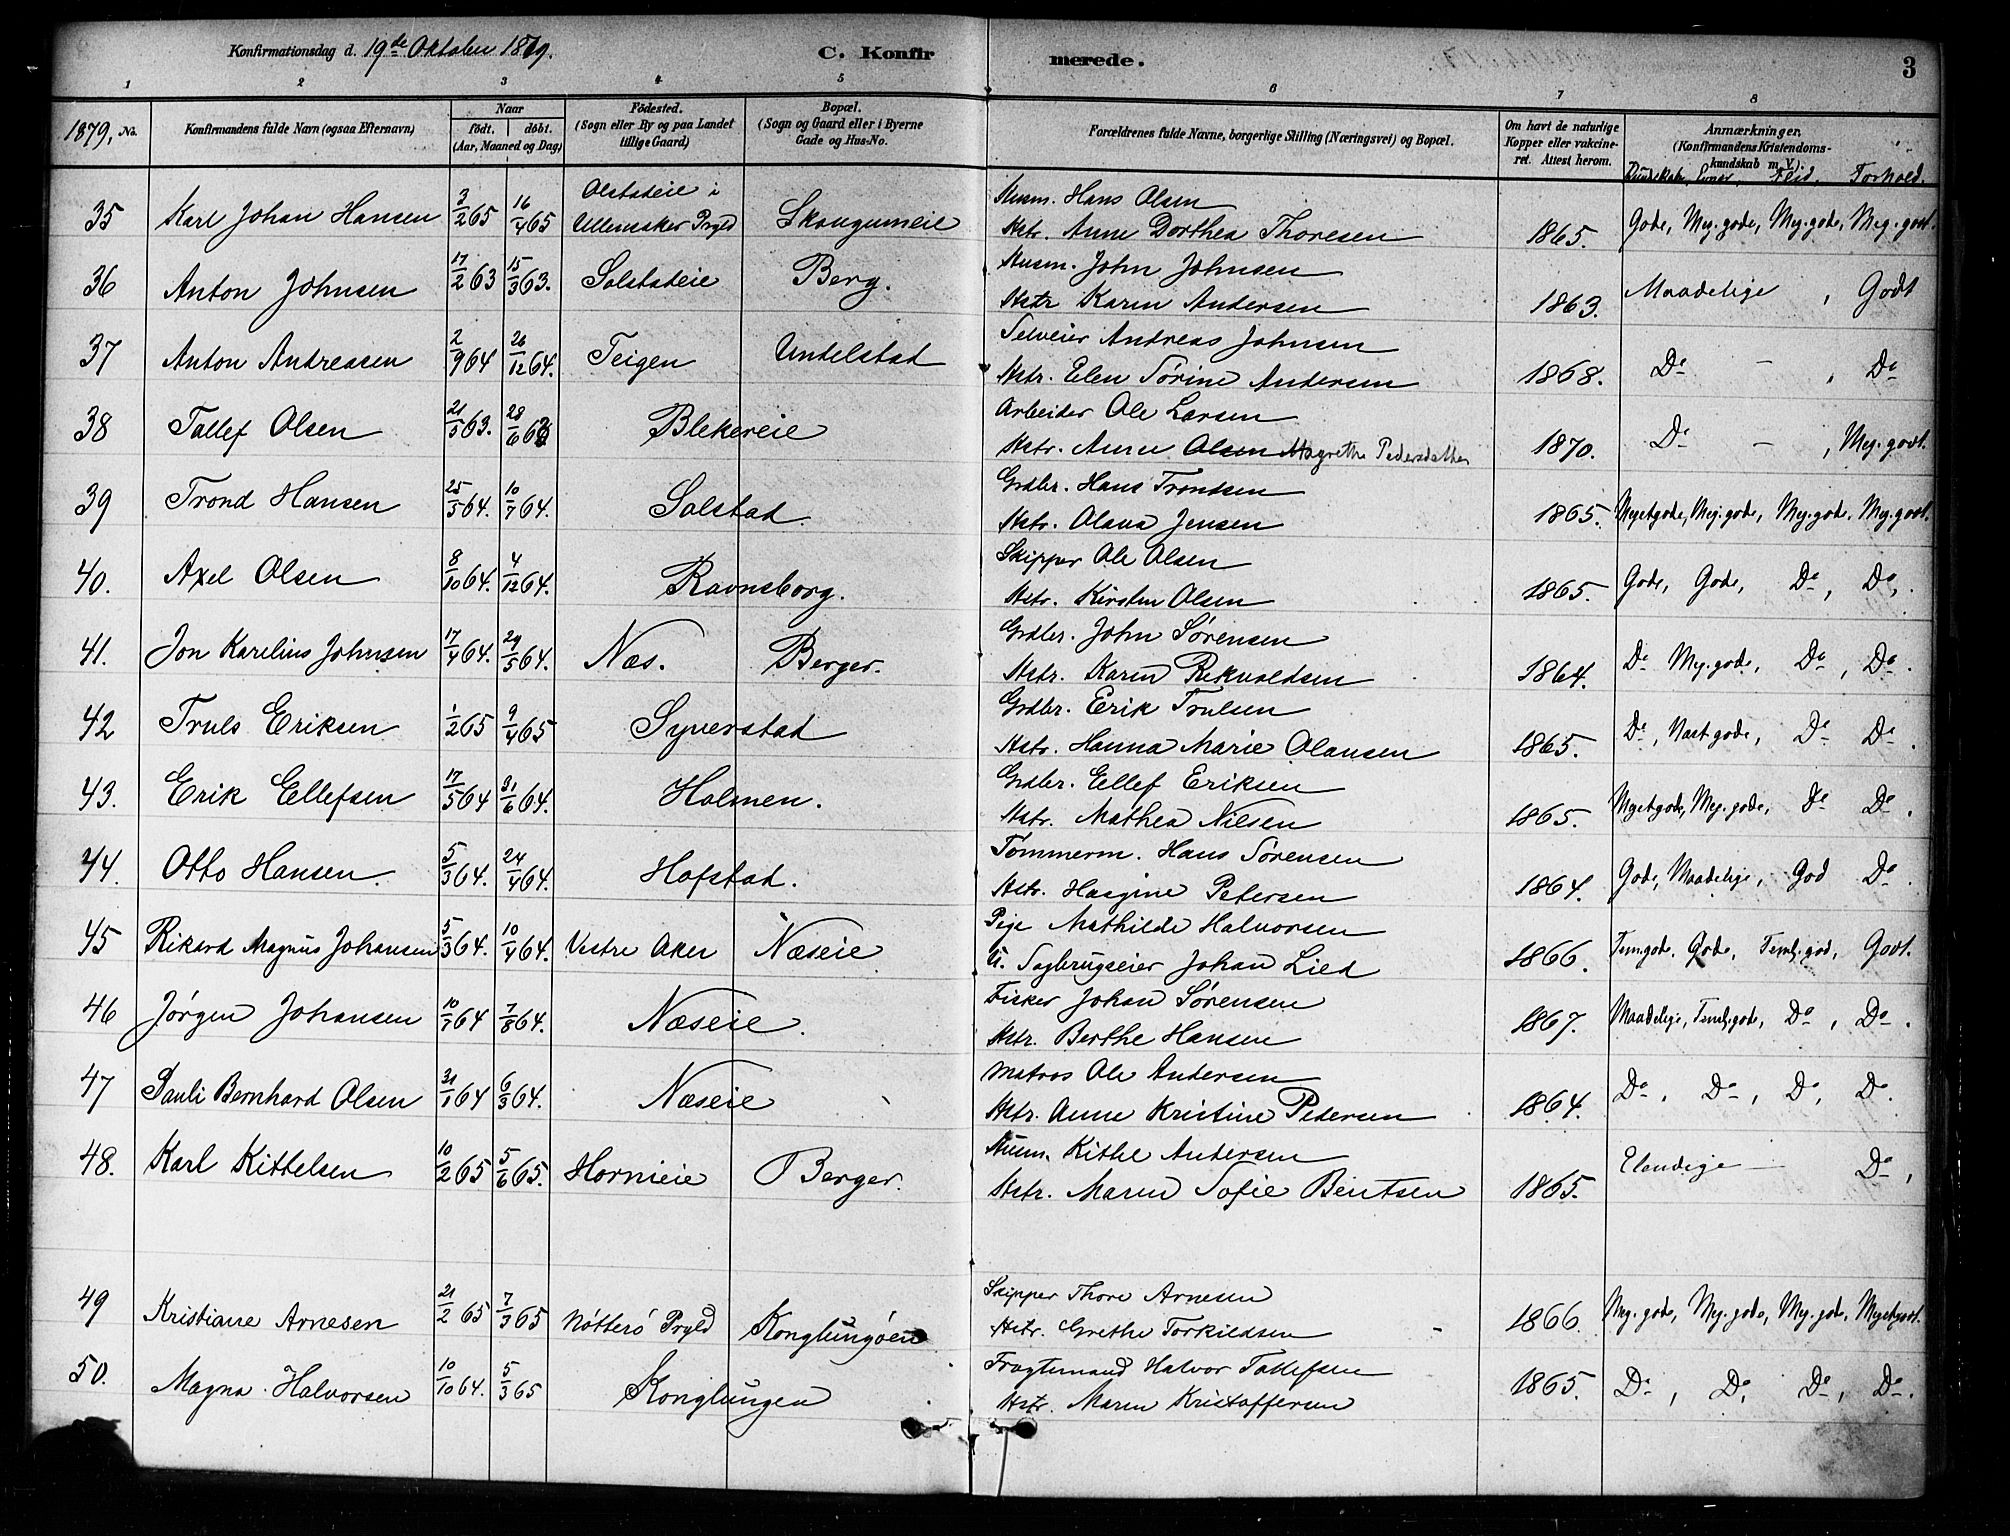 Konfirmationsdag d. 19de Oktober 1879. C. Konfirmerede. 3
1 2 3 4 5 6 7 8
1879, No. Konfirmandens fulde Navn (ogsaa Efternavn) Naar født. døbt. (Aar, Maaned og Dag) Fødested. (Sogn eller By og paa Landet tillige Gaard) Bopæl. (Sogn og Gaard eller i Byerne Gade og Hus-No. Forældrenes fulde Navne, borgerlige Stilling (Næringsvei) og Bopæl. Om havt de naturlige Kopper eller vaccineret. Attest herom. Anmærkninger. (Konfirmandens Kristendomskundskab m. V.)
Kundskab, Evner, Flid, Forhold.
35 Karl Johan Hansen 3/2 65 16/4 65 Olstadeie i Ullensaker Prgld Skaugumeie Husm. Hans Olsen
Hstr. Anne Dorthea Thoresen 1865. Gode, Meg. gode, Meg. gode, Meg. godt.
36 Anton Johnsen 17/2 63 15/3 63. Solstadeie Berg. Husm. John Johnsen
Hstr Karen Andersen 1863. Maadelige, Godt
37 Anton Andreasen 2/9 64 26/12 64. Teigen Undelstad Selveier Andreas Johnsen
Hstr. Elen Sørine Andersen 1868. Do - , Do
38 Tallef Olsen 21/5 63. 28/6 63 Blekereie Arbeider Ole Larsen
Hstr. Anne Olsen Magrethe Pedersdatter 1870. Do - , Meg. godt.
39 Trond Hansen 25/5 64. 10/7 64. Solstad. Grdbr. Hans Trondsen
Hstr. Olava Jensen 1865. Meget gode, Meg. gode, Meg. gode. Meg. godt.
40. Axel Olsen 8/10 64. 4/12 64. Ravnsborg. Skipper Ole Olsen
Hstr. Kirsten Olsen 1865. Gode, Gode, Do, Do.
41. Jon Karelius Johnsen 17/4 64. 29/5 64. Næs. Berger. Grdbr. John Sørensen
Hstr. Karen Rekvoldsen 1864. Do Meg. gode, Do, Do.
42 Truls Eriksen 1/2 65 9/4 65 Syverstad Grdbr. Erik Trulsen
Hstr. Hanna Marie Olausen 1865. Do, Næst. gode, Do Do.
43. Erik Ellefsen 17/5 64 31/6 64. Holmen. Grdbr. Ellef Eriksen
Hstr. Mathea Nilsen 1865. Meget gode, Meg. gode, Do Do.
44. Otto Hansen. 5/3 64. 24/4 64. Hofstad. Tømmerm. Hans Sørensen
Hstr. Hasgine Petersen 1864. Gode, Maadelige, God Do.
45 Rikard Magnus Johansen 5/3 64. 10/4 64. Vestre Aker Næseie Pige Mathilde Halvorsen
U. Sagbrugseier Johan Lied 1866. Tem. gode. Gode, Teml. god, Godt.
46 Jørgen Johansen 10/7 64 7/8 64. Næseie. Fisker Johan Sørensen
Hstr. Berthe Hansen 1867. Maadelige, Teml. gode, Do, Do.
47 Pauli Bernhard Olsen 31/1 64 6/3 64. Næseie Matros Ole Andersen
Hstr. Anne Kristine Pedersen 1864. Do, Do, Do, Do.
48. Karl Kittelsen 10/2 65 5/6 65. Hornieie Berger. Husm. Kittel Andersen
Hstr. Maren Sofie Bentsen 1865. Elendige - Do,
49 Kristiane Arnesen 21/2 65 7/5 65 Nøtterø Prgld Konglungøen Skipper Thore Arnesen
Hstr. Grethe Torkildsen 1866. Meg. gode, Meg. gode, Meg. gode, Meget godt.
50. Magna Halvorsen 10/10 64. 5/3 65 Konglungen Fragtemand Halvor Tallefsen
Hstr. Maren Kristoffersen 1865. Do, Do, Do, Do.